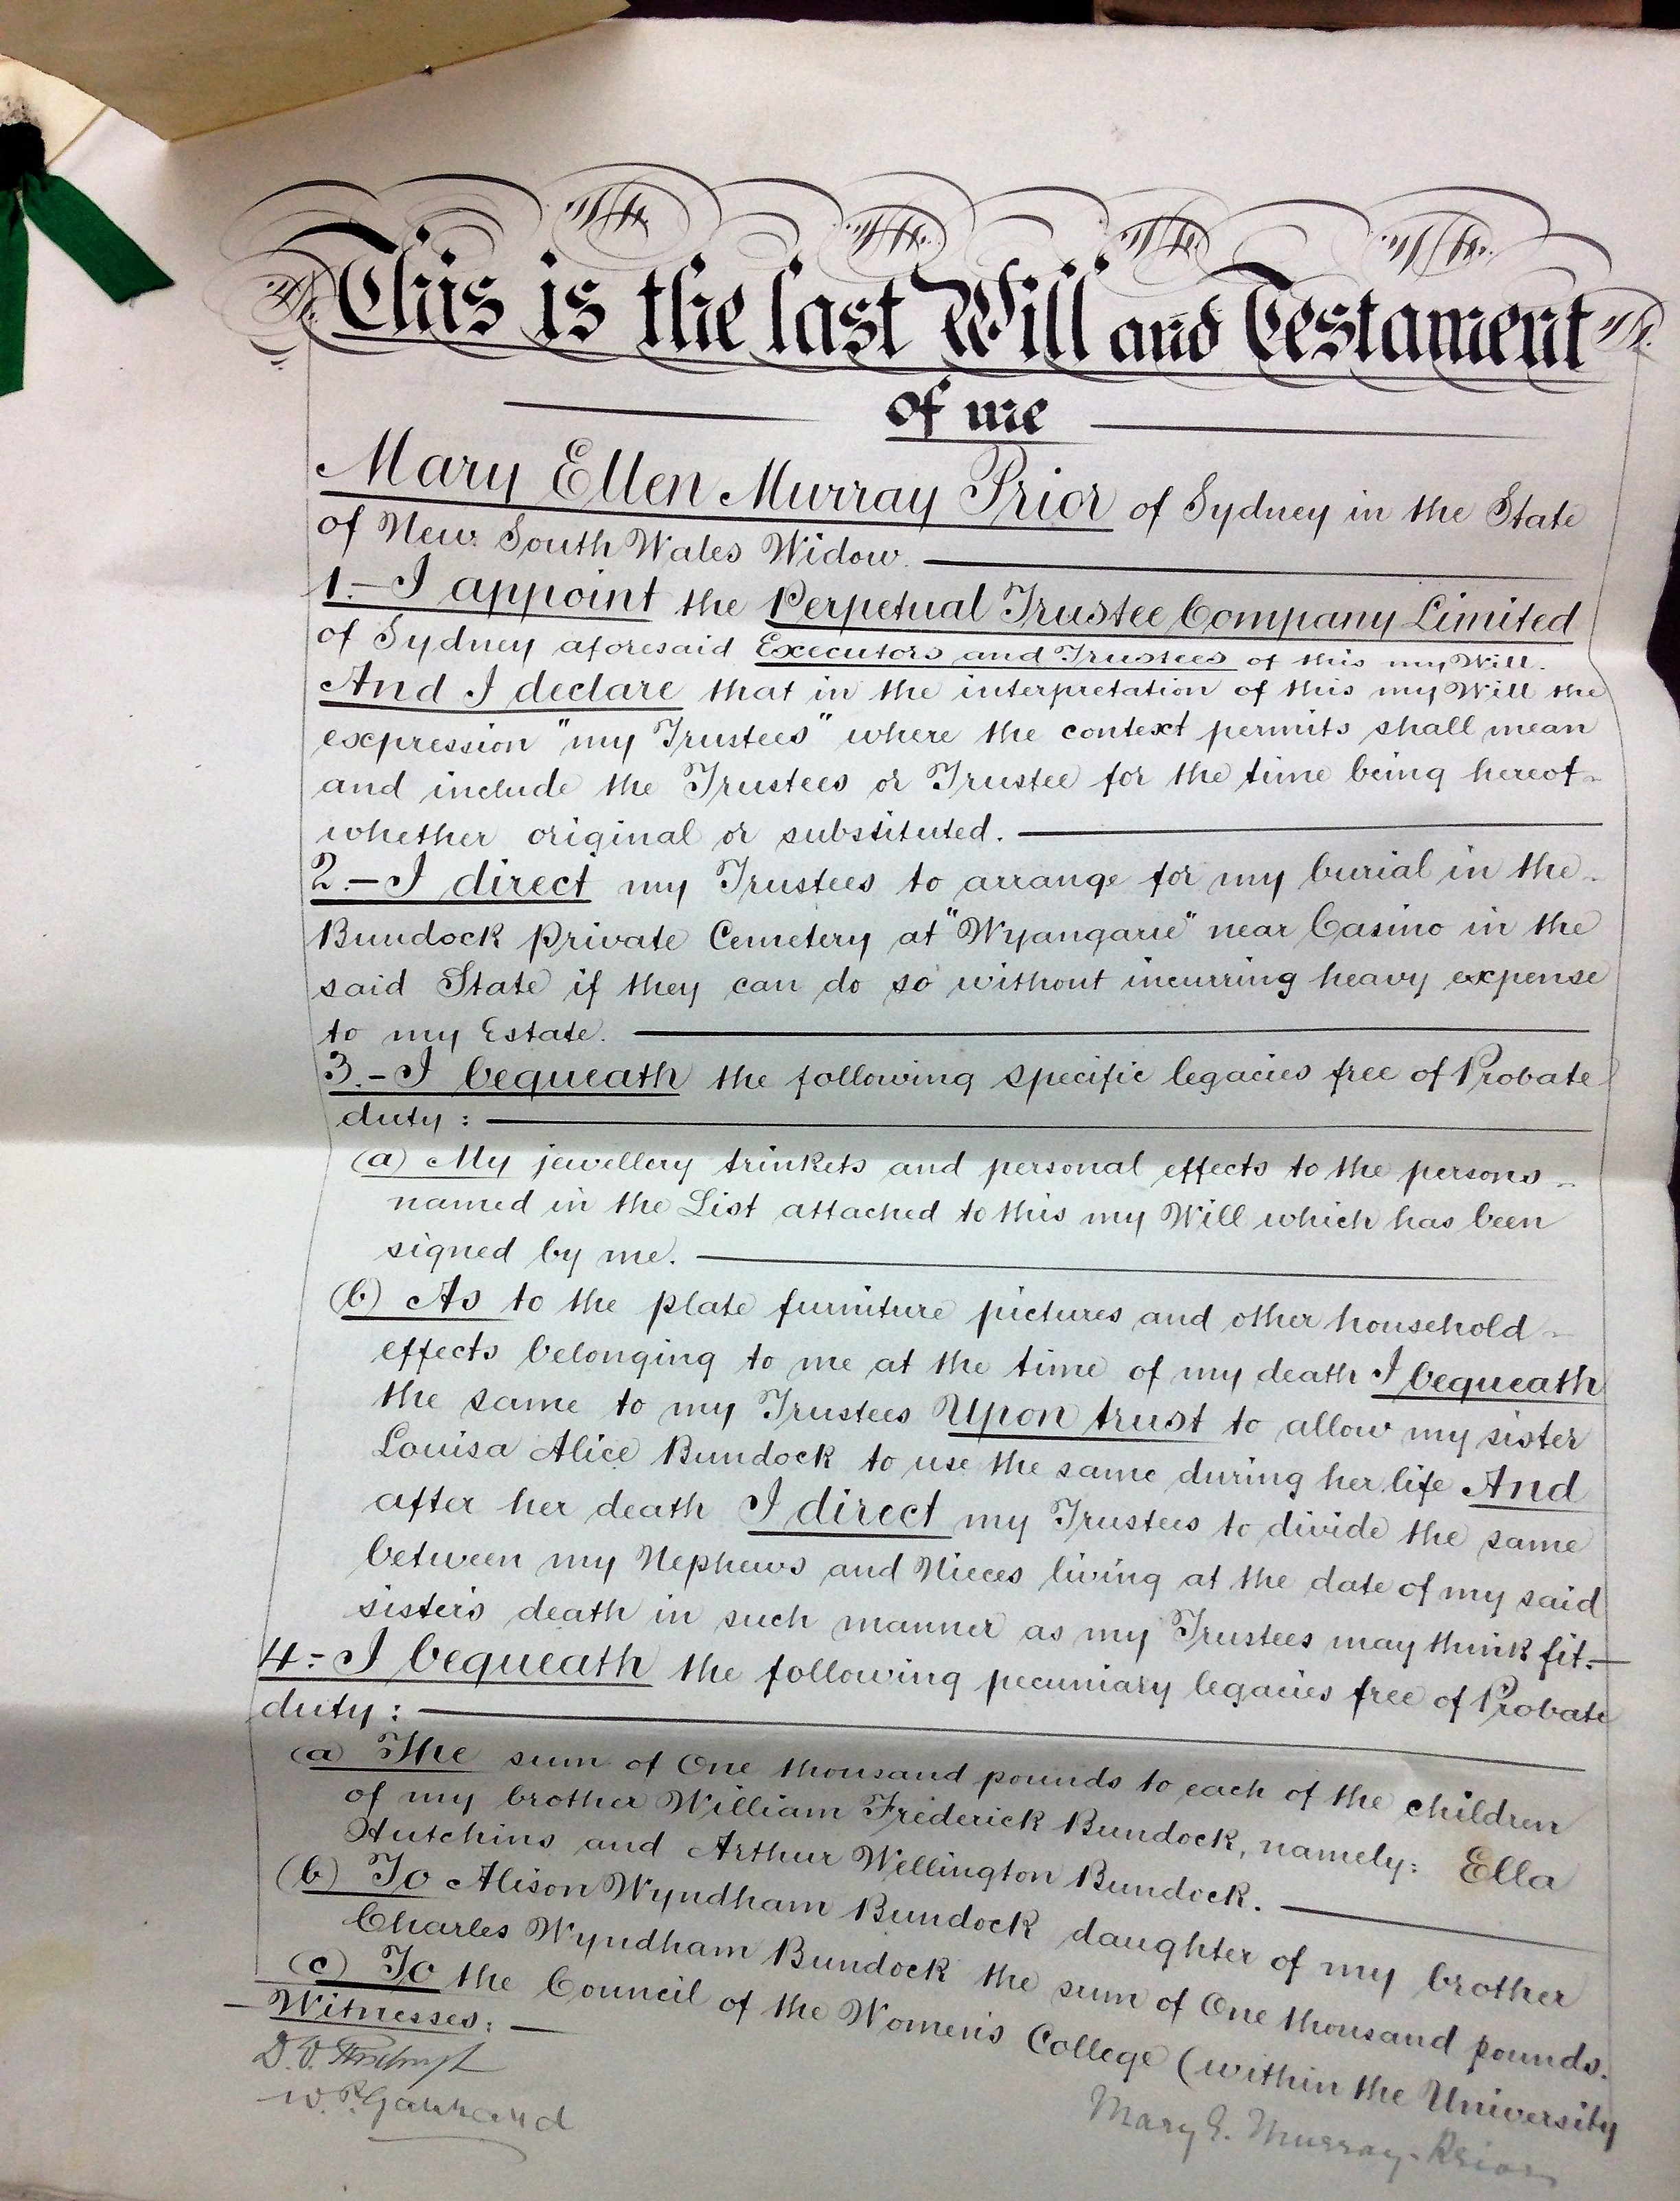 This is the last Will and Testament
of me
Mary Ellen Murray Prior of Sydney in the State
of New South Wales Widow.
1.- I appoint the Perpetual Trustee Company Limited
of Sydney aforesaid Executors and Trustees of this my Will.
And I declare that in the interpretation of this my Will the
expression "my Trustees" where the context permits shall mean
and include the Trustees or Trustee for the time being hereof
whether original or substituted.
2.- I direct my Trustees to arrange for my burial in the
Bundock private Cemetery at "Wyangarie" near Casino in the
said State if they can do so without incurring heavy expense
to my Estate.
3.- I bequeath the following specific legacies free of Probate
duty :
(a) My jewellery trinkets and personal effects to the persons
named in the List attached to this my Will which has been
signed by me.
(b) As to the plate furniture pictures and other household
effects belonging to me at the time of my death I bequeath
the same to my Trustees Upon trust to allow my sister
Louisa Alice Bundock to use the same during her life And
after her death I direct my Trustees to divide the same
between my Nephews and Nieces living at the date of my said
sister's death in such manner as my Trustees may think fit.
4.- I bequeath the following pecuniary legacies free of Probate
duty :
(a) The sum of One thousand pounds to each of the children
of my brother William Frederick Bundock, namely: Ella
Hutchins and Arthur Wellington Bundock.
(b) To Alison Wyndham Bundock daughter of my brother
Charles Wyndham Bundock the sum of One thousand pounds.
(c) To the Council of the Women's College (within the University
Witnesses:
D. V.
W. P. Garrand
Mary E. Murray-Prior